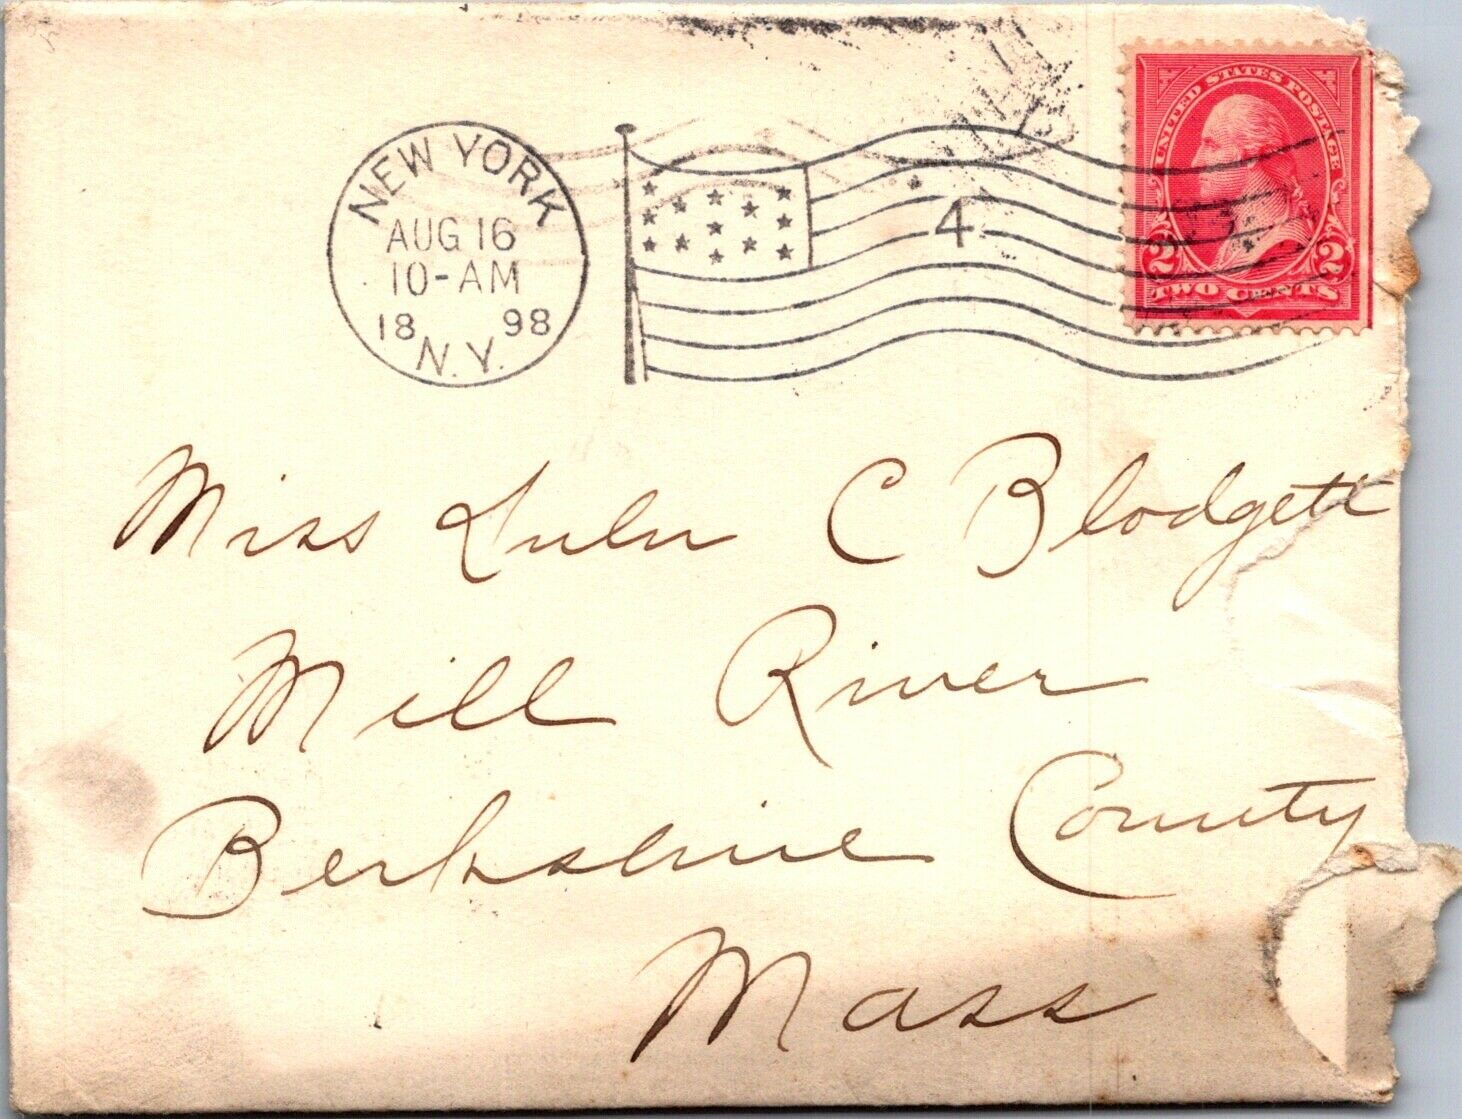 NEW YORK
AUG 16
10-AM
18 98
N.Y.
4
UNITED STATES POSTAGE
2 2
TWO CENTS
Miss Lulu C Blodgett
Mill River
Berkshire County
Mass